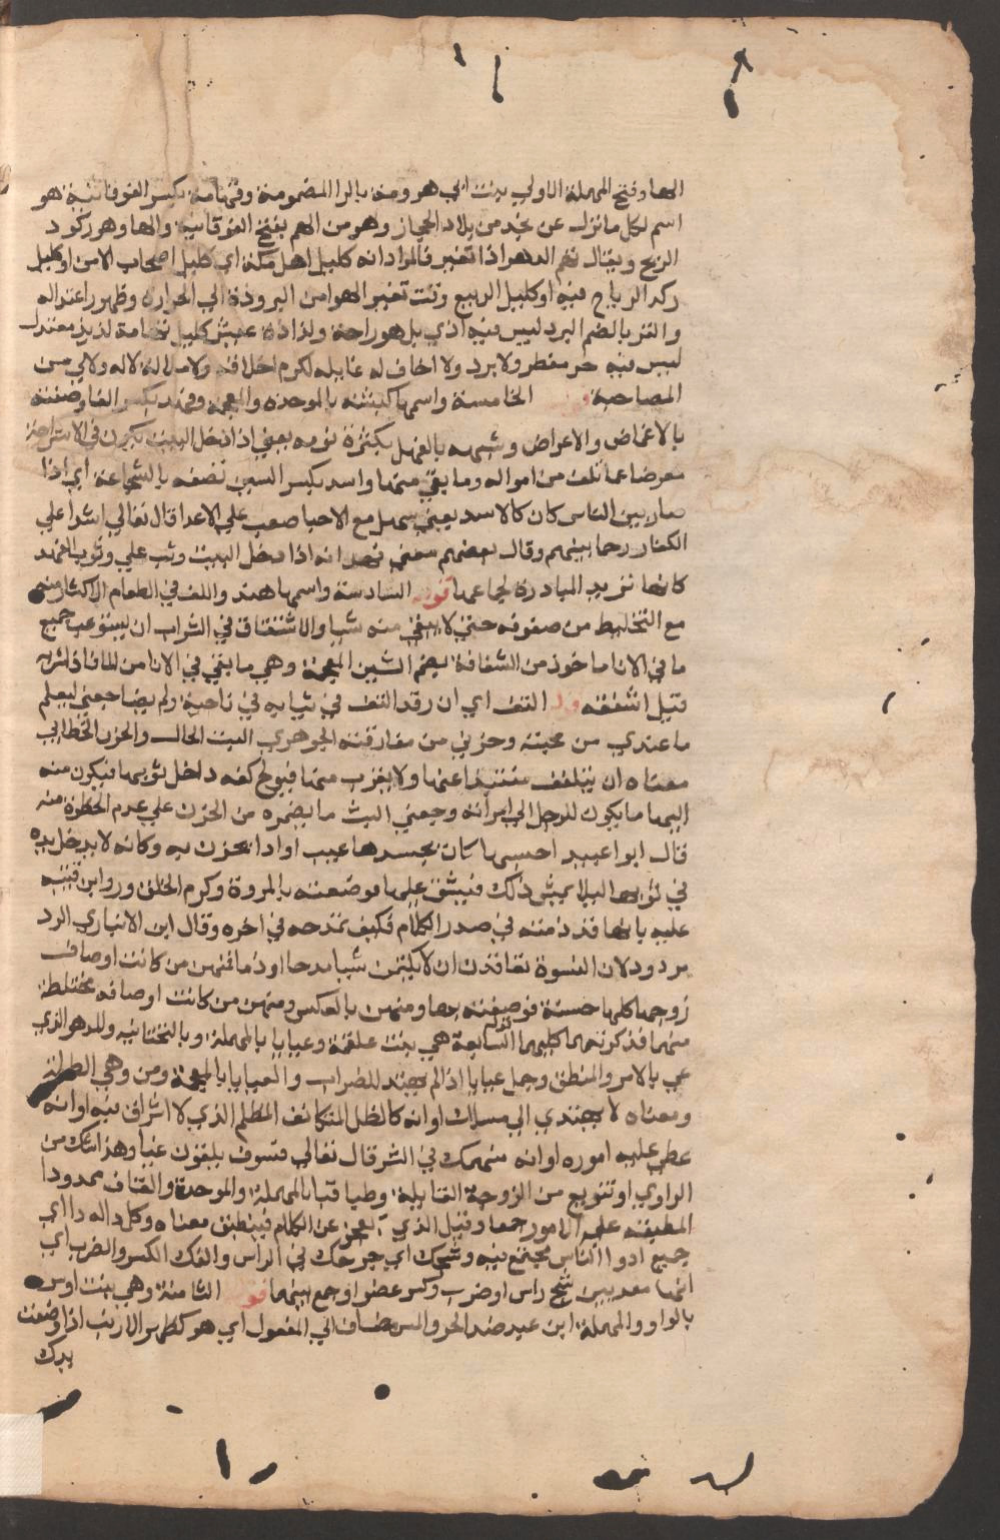 الها وفتح المهملة الاولي بنت ابي هرومة بالرا المضمومة وتهامة بكسر الفوقانية هو
اسم لكل ما نزل عن نجد من بلاد الحجاز وهو من التهم بفتح الفوقانية والها وهو ركود
الريح ويقال تهم الدهر اذا تغير فالمراد انه كليل اهل مكة اي كليل اصحاب الامن او كليل
ركد الرياح فيه او كليل الربيع وقت تغير الهوا من البرودة الي الحرارة وظهور اعتداله
والقر بالضم البرد ليس فيه اذي بل هو راحة ولذاذة عيش كليل تهامة لذيذ معتدل
ليس فيه حر مفطر ولا برد ولا اخاف له غايلة لكرم اخلاقه ولا ملالة له ولا لي من
المصاحبة قوله الخامسة واسمها كبشة بالموحدة والمعجمة وفهد بكسر الها وصفته
بالاغماض والاعراض وشبهه بالفهد لكثرة نومه يعني اذا دخل البيت يكون في الاستراحة
معرضا عما تلف من امواله وما بقي منها واسد بكسر السين تصفه بالشجاعة اي اذا
صار بين الناس كان كالاسد يعني سهل مع الاحبا صعب علي الاعدا قال تعالي اشدا علي
الكفار رحما بينهم وقال بعضهم معني فهد انه اذا دخل البيت وثب علي وثوب الفهد
كانها تريد المبادرة لجماعها قوله السادسة واسمها هند واللف في الطعام الاكثار منه
مع التخليط من صنوفه حتي لا يبقي منه شيا والاشتفاف في الشراب ان يستوعب جميع
ما في الانا ماخوذ من الشفافة بضم الشين المعجمة وهي ما بقي في الانا من الما فاذا شربه
قيل اشتفه قوله التف اي ان رقد التف في ثيابه في ناحية ولم يضاجعني ليعلم
ما عندي من محبته وحزني من مفارقته الجوهري البث الحال والحزن الخطابي
معناه ان يتلفف منتبذا عنها ولا يقرب منها فيولج كفه داخل ثوبها فيكون منه
اليها ما يكون للرجل الي امراته ومعني البث ما يضمره من الحزن علي عدم الحظوة منه
قال ابو اعبيد احسبها كان بجسدها عيب او ادا تحزن به وكانه لا يدخل يده
في ثوبها ليلا يمس ذلك فيشق عليها فوصفته بالمروة وكرم الخلق ورد ابن قتيبة
عليه بانها قد ذمته في صدر الكلام فكيف تمدحه في اخره وقال ابن الانباري الرد
مردود لان النسوة تعاقدن ان لا يكتمن شيا مدحا او ذما فمنهن من كانت اوصاف
زوجها كلها حسنة فوصفته بها ومنهن بالعكس ومنهن من كانت اوصافه مختلطة
منهما فذكرتهما كليهما قوله السابعة هي بنت علقمة وعيايا بالمهملة وبالتحتانيه وللدهو الذي
عي بالامر والمنطق وجمل عيايا اذا لم يهتد للضراب والغيايا بالمعجمة ومن وهي الظلمة
ومعناه لا يهتدي الي مسلك او انه كالظل المتكاثف المظلم الذي لا اشراق فيه او انه
غطي عليه اموره او انه منهمك في الشر قال تعالي فسوف يلقون غيا وهذا شك من
الراوي او تنويع من الزوجة القايلة وطباقا بالمهملة والموحدة والقاف ممدودا
المطبقة عليه الامور حمقا وقيل الذي يعجز عن الكلام فينطبق معناه وكل داله دا اي
جميع ادوا الناس مجتمع فيه وشجك اي جرحك في الراس والفك الكسر والضرب اي
انها معه بين شج راس او ضرب وكسر عضو او جمع بينهما قوله الثامنة وهي بنت اوس
بالواو والمهملة ابن عبد ضد الحر والمس مضاف الي المفعول اي هو كظهر الارنب اذا وضعت
يدك